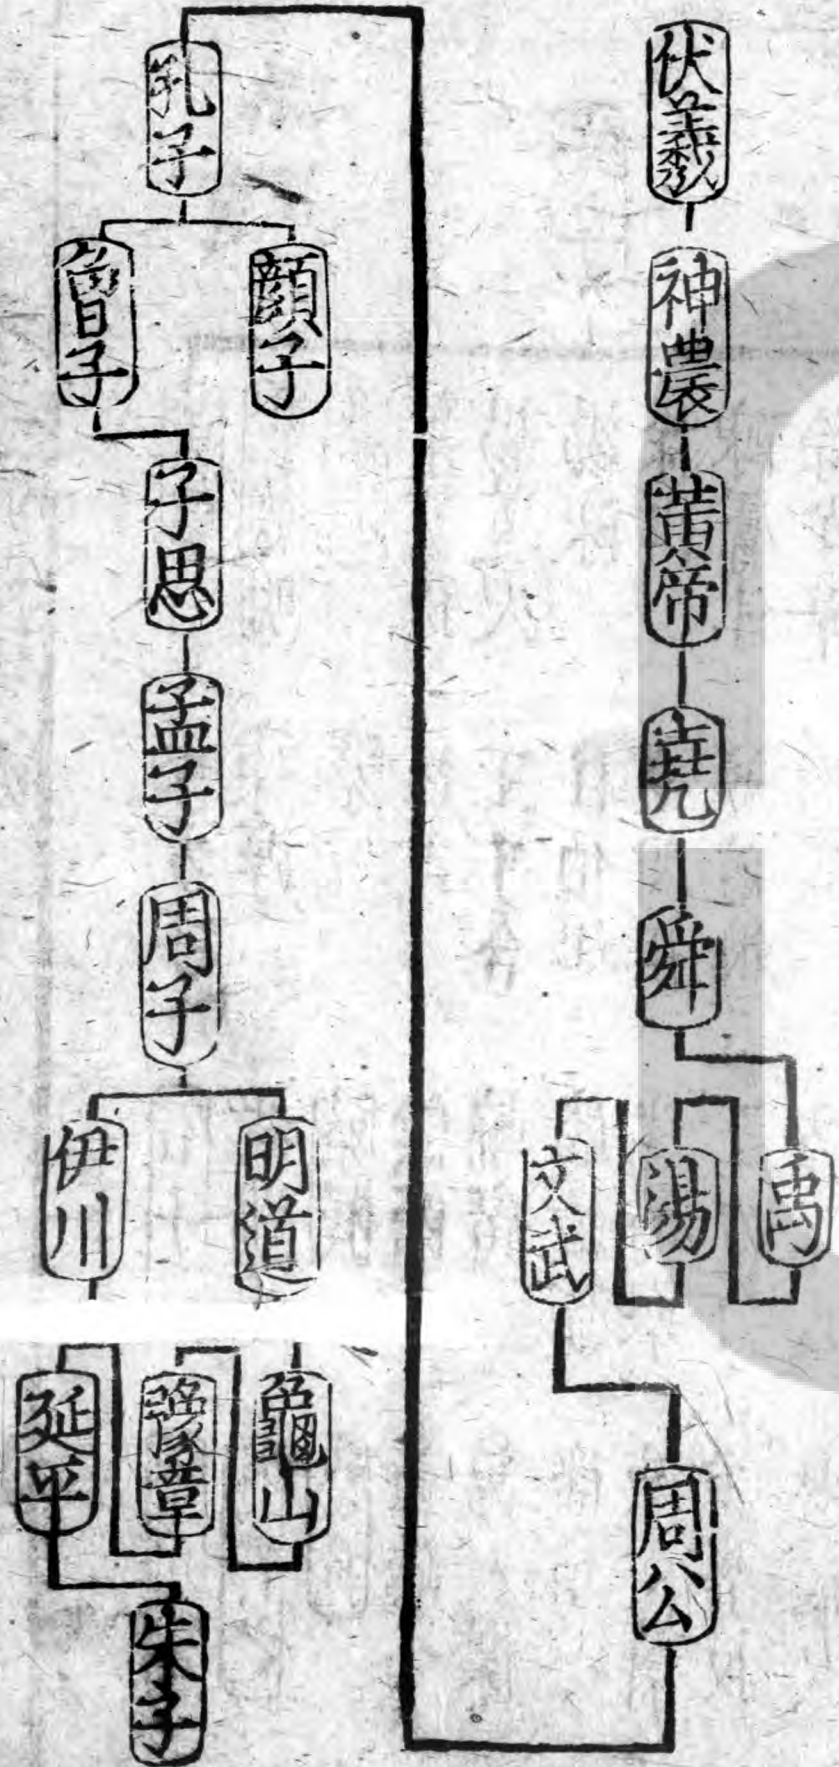 伏羲
神農
黃帝
堯
舜
禹
湯
文武
周公
孔子
顏子
曾子
子思
孟子
周子
明道
伊川
龜山
豫章
延平
朱子